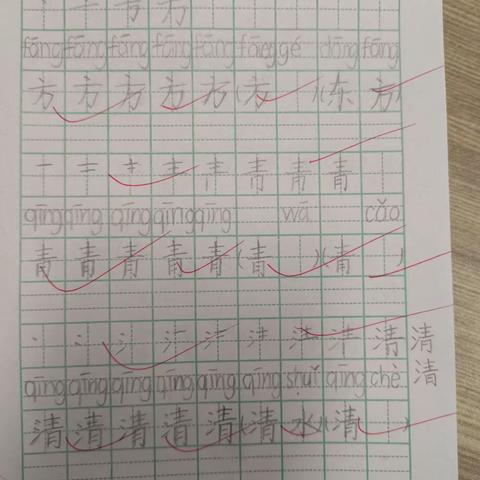 方 方
fāng fāng fāng fāng fāng fāng gé dōng fāng
方 方 方 方 方 (方 )(东 方)
青 青 青
qīng qīng qīng qīng qīng wā cǎo
青 青 青 青 青 (青 )(青 )
清 清
qīng qīng qīng qīng qīng qīng shuǐ qīng chè
清
清 清 清 清 清 (清 水)(清 )